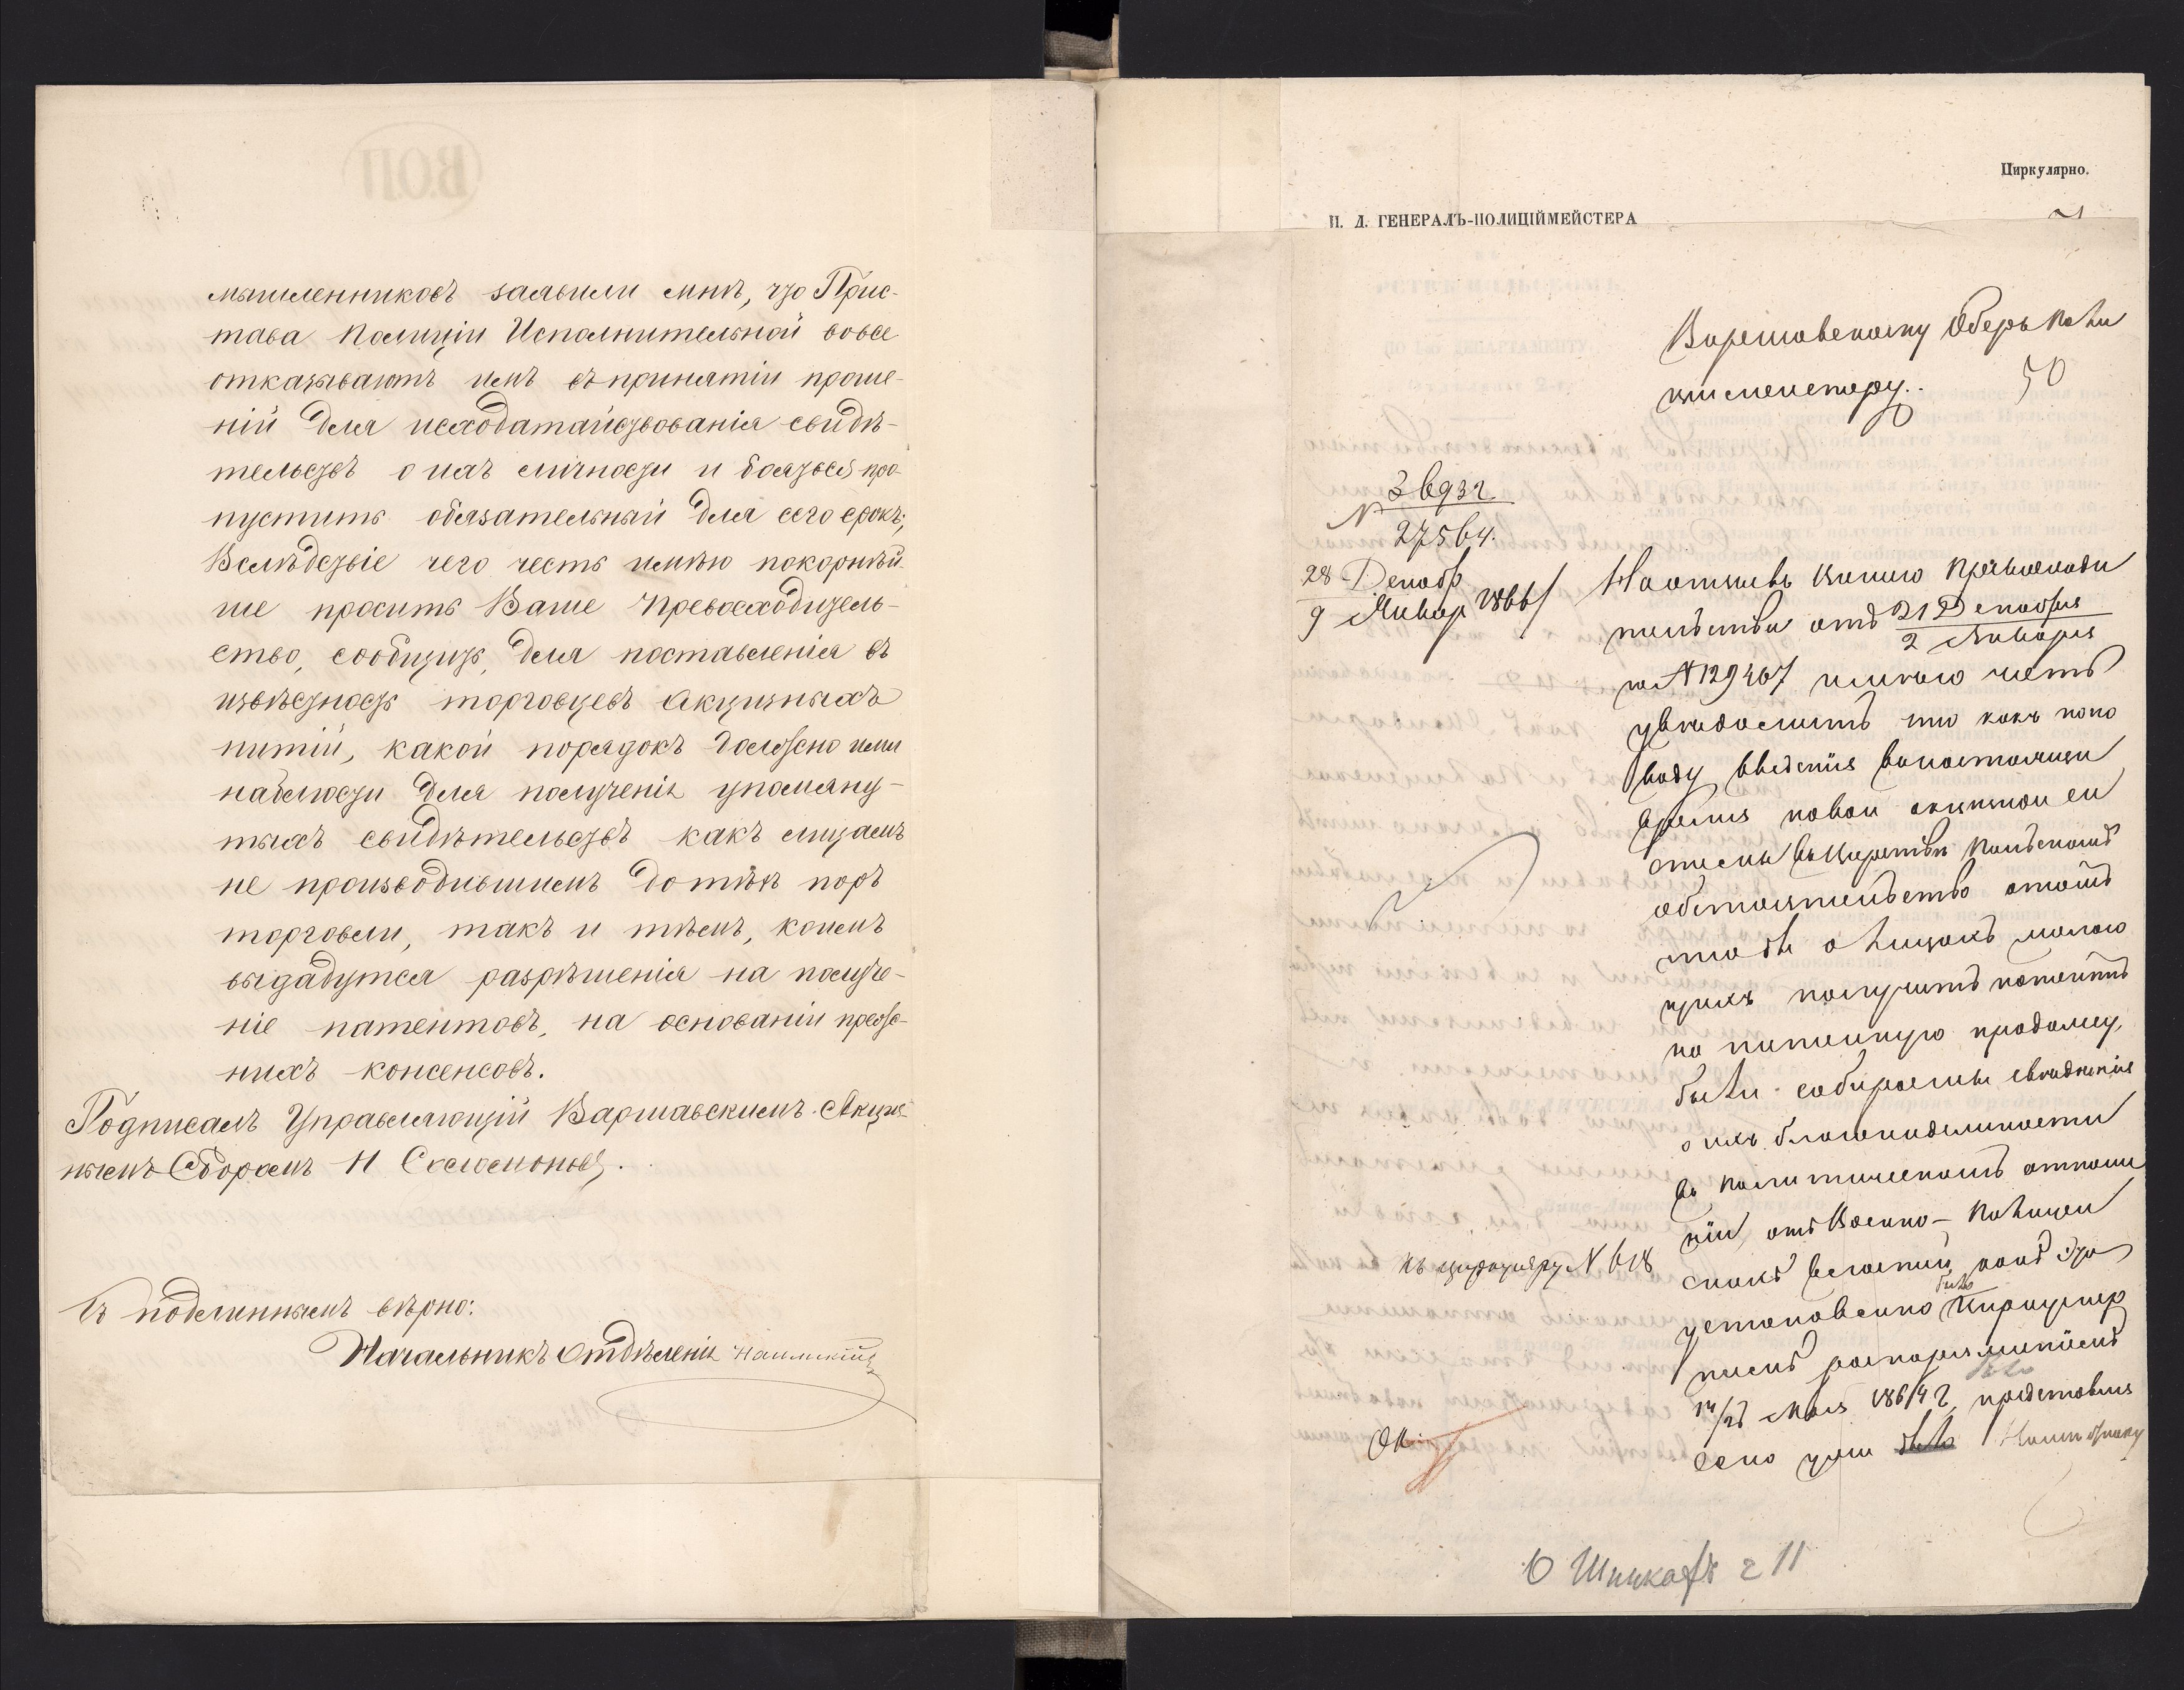 мышленниковъ заявили мнѣ, что Прис-
тава Полиціи Исполнительной вовсе
отказываютъ имъ въ принятіи проше-
ній для исходатайствованія свидѣ-
тельствъ о ихъ личности и боятся про-
пустить обязательный для сего срокъ;
Вслѣдствіе чего честь имѣю покорнѣй-
ше просить Ваше Превосходитель-
ство, сообщить, для поставленія въ
извѣстность торговцевъ акцизныхъ
питій, какой порядокъ должно ими
наблюсти для полученія упомяну-
тыхъ свидѣтельствъ какъ лицамъ
не производившимъ до тѣхъ поръ
торговли, такъ и тѣмъ, коимъ
выдадутся разрѣшенія на получе-
ніе патентовъ, на основаніи преж-
нихъ консенсовъ.
Подписалъ Управляющій Варшавскимъ Акциз-
нымъ Сборомъ Н Соломоновъ.
Съ подлиннымъ вѣрно:
Начальникъ Отдѣленія
ВОП
Циркулярно.
И. Д. ГЕНЕРАЛЪ-ПОЛИЦІЙМЕЙСТЕРА
Варшавскому Оберъ Поли
цiймейстеру.
50
№ 27564.
28 Декабр
9 Январ 1866/
На отзывъ Вашего Превосходи
тельства отъ 21 Декабря
2 Января
за № 129467 имѣю честь
увѣдомить что какъ по по
воду введенія въ настоящее
время новой акцизной си
стемы въ Царствѣ Польскомъ
обстоятельство о томъ
чтобы о лицахъ желаю
щихъ получить патентъ
на питейную продажу,
были собираемы свѣдѣнія
о ихъ благонадежности
въ политическомъ отноше
ніи, отъ Военно-Полицей
скихъ властей, какъ это
къ циркуляру № 618
было
установлено Циркуляр
нымъ распоряженіемъ
14/26 Мая 1864 г, предоставля
О Шинкахъ г 11